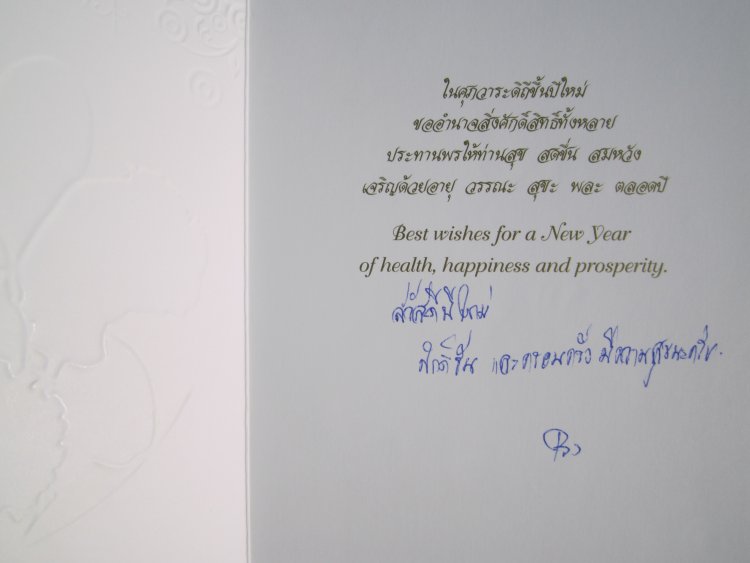 ในศุภวาระดิถีขึ้นปีใหม่
ขออำนาจสิ่งศักดิ์สิทธิ์ทั้งหลาย
ประทานพรให้ท่านสุข สดชื่น สมหวัง
เจริญด้วยอายุ วรรณะ สุขะ พละ ตลอดปี
Best wishes for a New Year
of health, happiness and prosperity.
สวัสดีปีใหม่
และครอบครัว มีความสุขนะครับ